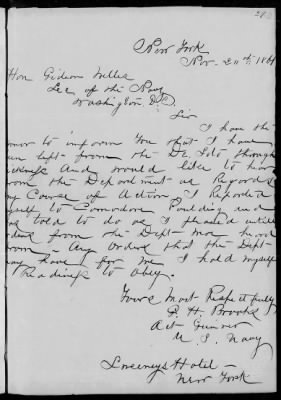 New York
Nov. 20th, 1861
Hon Gideon Welles
Sec of the Navy
Washington D.C.
Sir
I have the
onor to inform You that I have
en left from the De Soto through
ickness And would like to hear
rom the Department as Regards
my Course of Action. I Reported
yself to Comodore Paulding and
as told to do as I pleased untill
from the Dept- was heard
rom - Any Orders that the Dept-
may have for me I hold myself
Readiness to Obey.
Yours Most Respectfully
P. H. Brooks
Act Gunner
U. S. Navy
Sweeneys Hotel -
New York